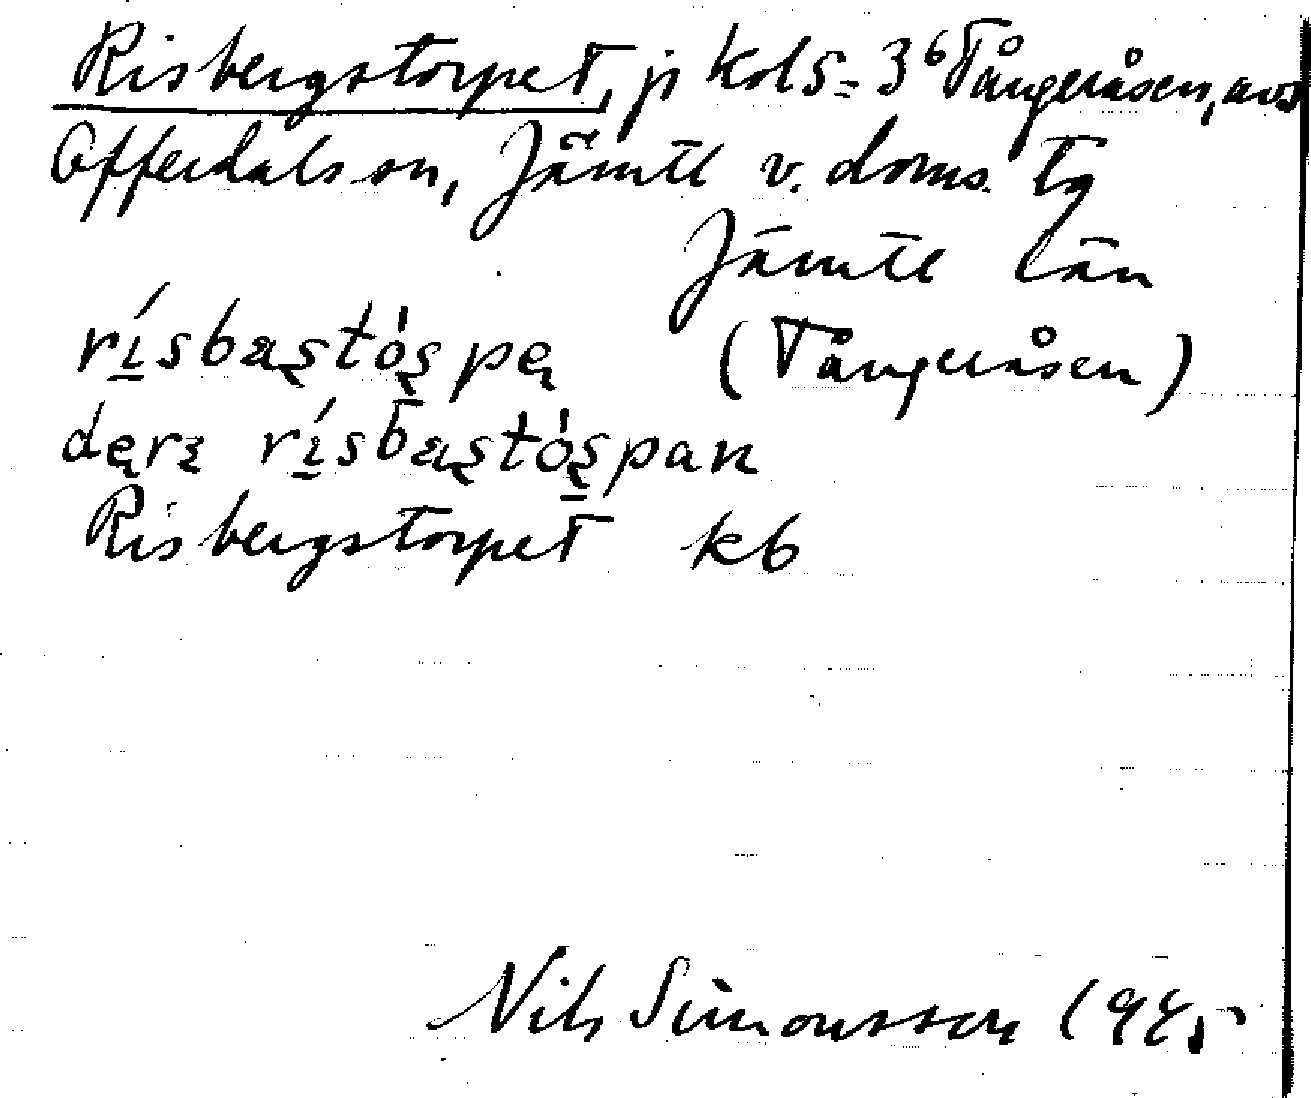 Risbergstorpet, p kols= 3⁶ Tångeråsen, avs
Offerdals sn, Jämtl v. doms. tg
Jämtl län
rísbaştóşpę (Tångeråsen)
dęrą rísbaştóşpan
Risbergstorpet kb
Nils Simonsson 1945